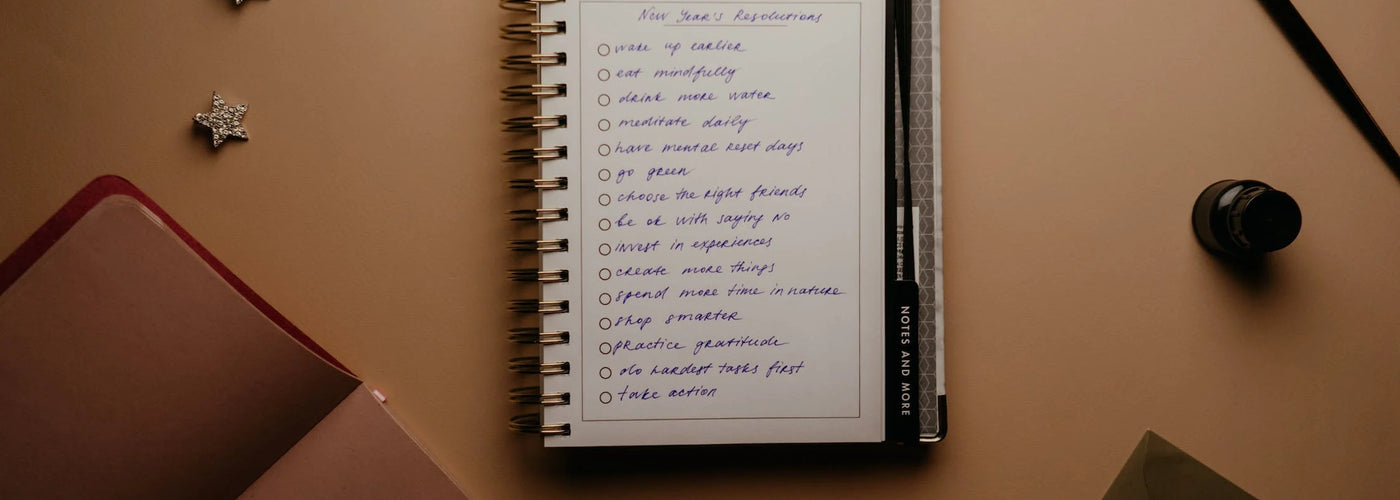 New Year's Resolutions
wake up earlier
eat mindfully
drink more water
meditate daily
have mental reset days
go green
choose the right friends
be ok with saying No
invest in experiences
create more things
spend more time in nature
shop smarter
practice gratitude
do hardest tasks first
take action
NOTES AND MORE